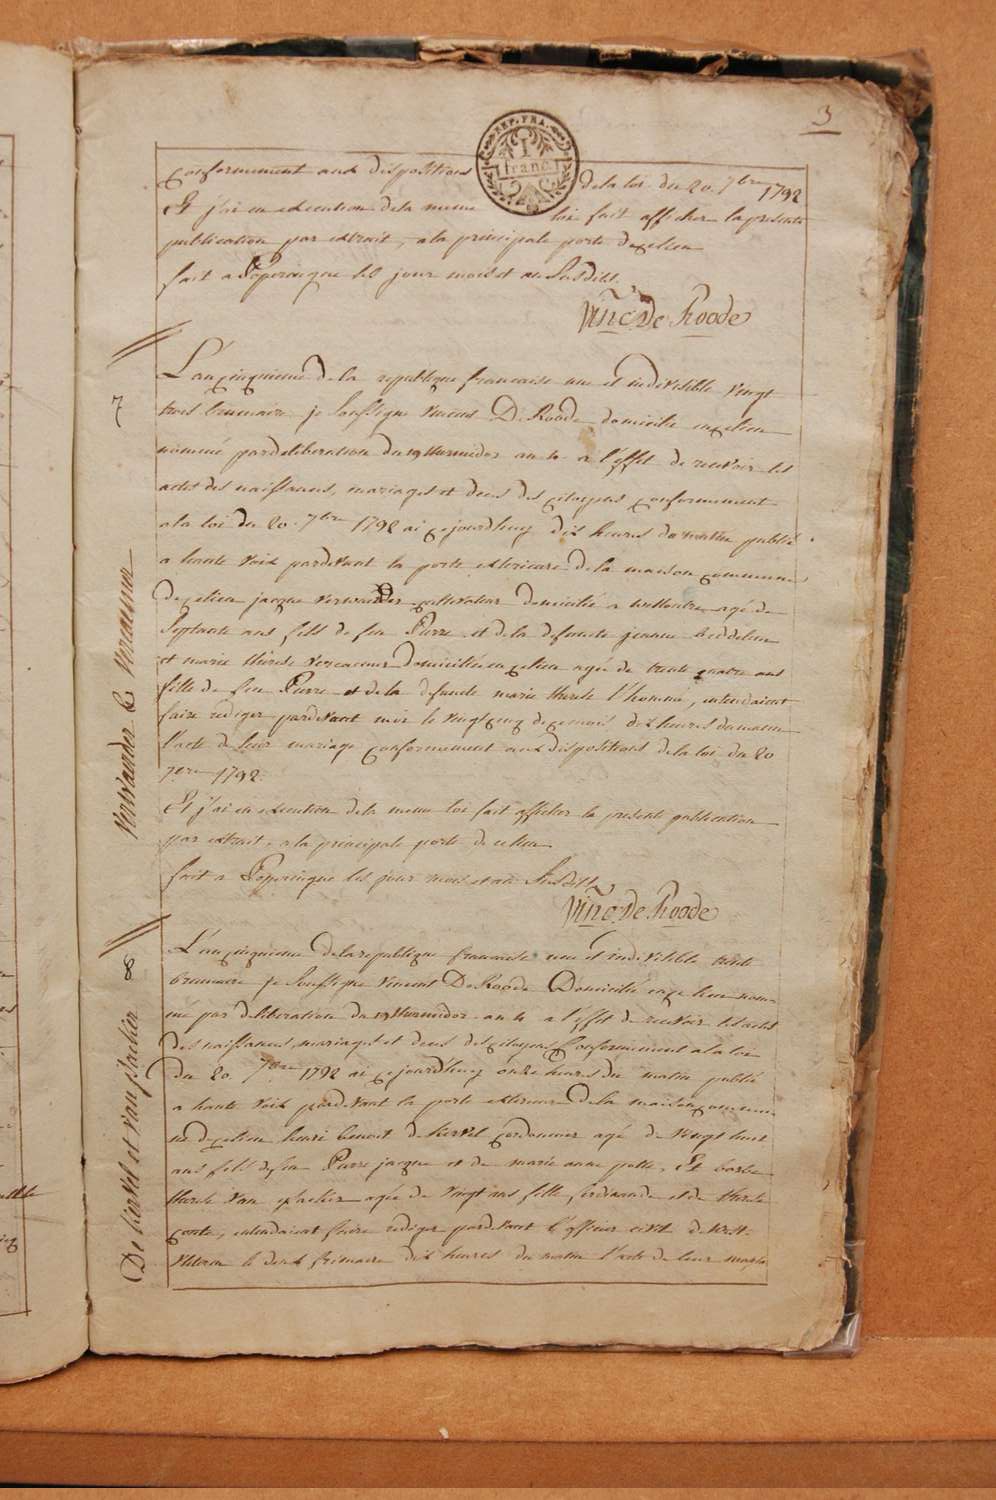 3
REP. FRA.
1
franc.
conformement aux dispositions de la loi du 20. 7bre 1792
Et j'ai en execution de la meme loi fait afficher la presente
publication par extrait, a la principale porte de ce lieu
fait a Poperingue les jour mois et an susdits.
Vinc. De Roode
7
Verwaerder & Vercamer
L'an cinquieme de la republique francaise une et indivisible vingt
trois brumaire je soussigne Vincent De Roode domicilie en ce lieu
nommé par deliberation du 19 thermidor an 4 a l'effet de recevoir les
actes des naissances, mariages et deces des citoyens conformement
a la loi du 20. 7bre 1792 ai ce jourdhuy dix heures du matin publié
a haute voix pardevant la porte exterieure de la maison commune
de ce lieu jacque cultivateur domicilié a agé de
septante ans fils de feu Pierre et de la defuncte jeanne
et marie therese Vercamer domiciliée en ce lieu agée de trente quatre ans
fille de feu Pierre et de la defuncte marie therese l'hommé, intendaient
faire rediger pardevant moi le vingt cinq de ce mois dix heures du matin
l'acte de leur mariage conformement aux dispositions de la loi du 20
7bre 1792.
Et j'ai en execution de la meme loi fait afficher la presente publication
par extrait, a la principale porte de ce lieu
fait a Poperingue les jour mois et an susdits
Vinc. De Roode
8
De kertel et van
L'an cinquieme de la republique francaise une et indivisible trente
brumaire je soussigne Vincent De Roode Domicilie en ce lieu nom-
mé par deliberation du 19 thermidor an 4 a l'effet de recevoir les actes
des naissances mariages et deces des citoyens conformement a la loi
du 20. 7bre 1792 ai ce jourdhuy onze heures du matin publié
a haute voix pardevant la porte exterieure de la maison commu-
ne de ce lieu henri benoit cordonnier agé de vingt huit
ans fils de feu Pierre jacque et de marie anne Et barbe
therese van agée de vingt ans fille ferdinande et de therese
intendaient faire rediger pardevant l'officier civil de
le deux frimaire dix heures du matin l'acte de leur maria